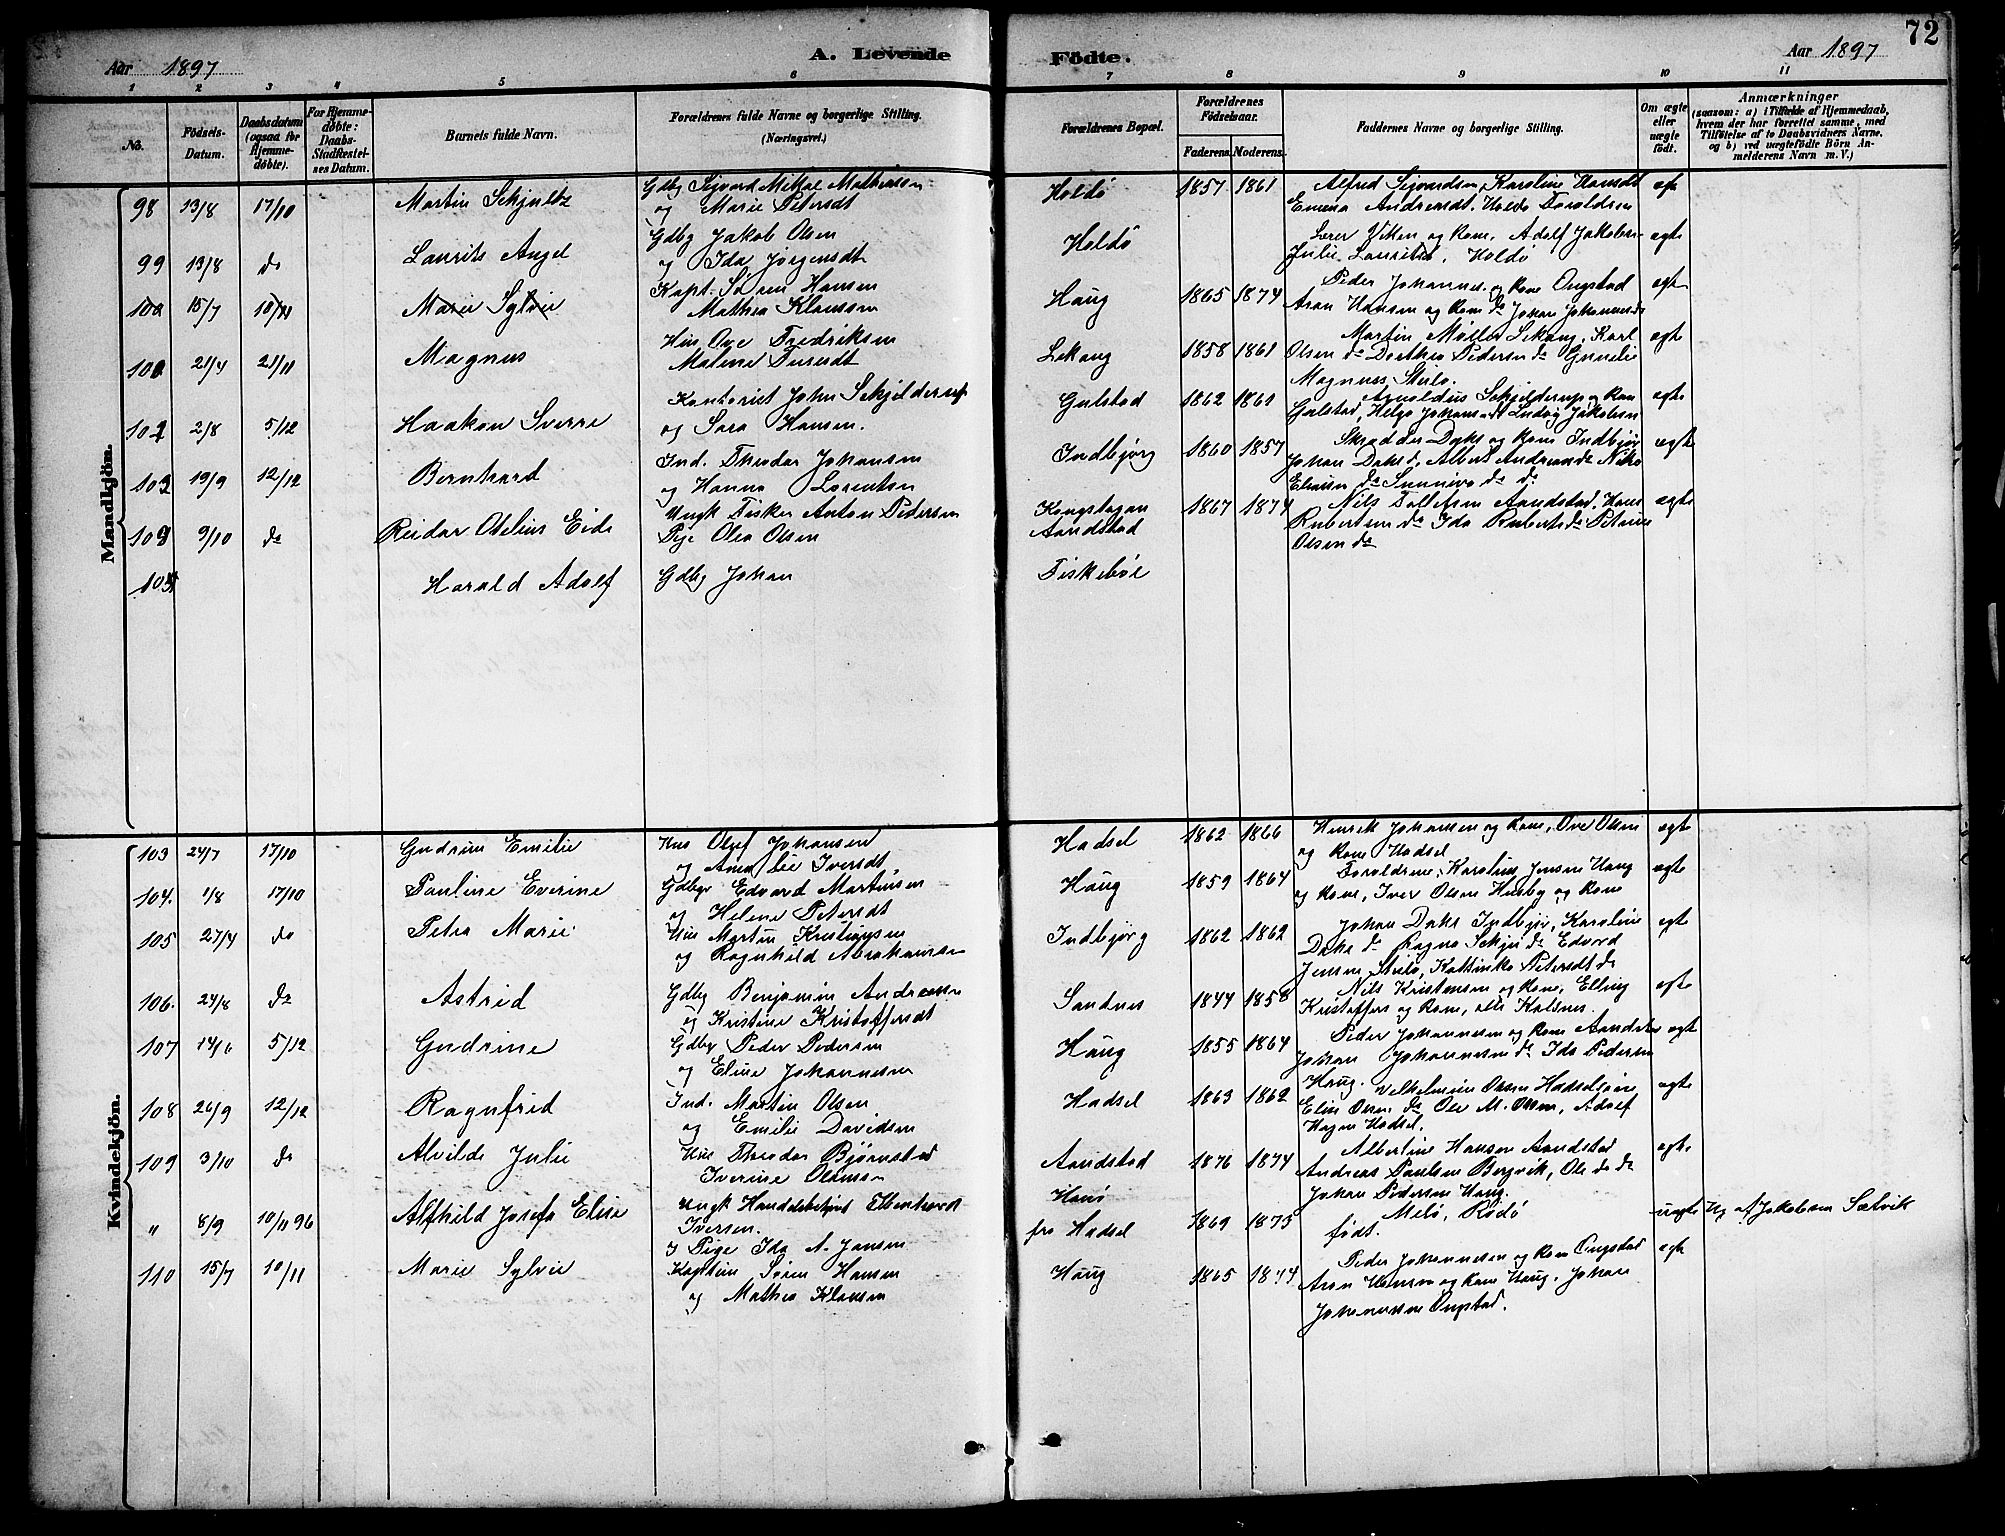 72
Aar 1897 A. Levende Födte. Aar 1897
1 2 3 4 5 6 7 8 9 10 11
No.
Födsels-Datum.
Daabsdatum (ogsaa for Hjemme-döbte).
For Hjemme-döbte: Daabs-Stadfæstelses Datum.
Barnets fulde Navn.
Forældrenes fulde Navne og borgerlige Stilling. (Næringsvei.)
Forældrenes Bopæl.
Forældrenes Födselsaar.
Faderens. Moderens.
Faddernes Navne og borgerlige Stilling.
Om ægte eller uægte födt.
Anmærkninger
(saasom: a) i Tilfælde af Hjemmedaab, hvem der har forrettet samme, med Tilföielse af to Daabsvidners Navne, og b) ved uægtefödte Börn Anmelderens Navn m. V.)
Mandkjön.
98 13/8 17/10 Martin Schjultz Gdbg Sigvard Mikal Mathesen Holdö 1857 1861 Alfred Sigvardsen, Karoline Hansdt egt
og Marie Petersdt Emma Andreasdt. Holdö Foroldren
99 13/8 do Laurits Angel Gdbg Jakob Olsen Holdö Lærer Viken og Kone, Adolf Jakobsen egte
og Ida Jörgensdt Julie Lauritsd, Holdö
100 15/7 10/11 Marie Sylvie Kapt. Sören Hansen Haug 1865 1874 Peder Johannes. og Kone Ongstad egt
Mathea Klaussen Aron Hansen og Kone do Johan Johannes do
100 21/4 21/11 Magnus Hus Ove Fredriksen Lekang 1858 1861 Martin Möller Lekang, Karl egte
Malene Olsen do Dorthea Pedersen do
Magnus Steilo.
102 2/8 5/12 Haakon Sverre Kontorist John Schjelderup Gulstad 1862 1861 Arnoldus Schjelderup og Kone egte
og Sara Hansen. Gulstad, Helga Johansdt Ludvig Jakobsen
102 19/9 12/12 Bernhard Ind. Theodor Johansen Indbjörg 1860 1857 Skrædder Daks og Kone Indbjör egte
og Hanna Lorentsen Johan Daks do, Albert Andreas do
103 9/10 do Reidar Otelius Eide Ungk Fisker Anton Pedersen 1867 1874 Nils Tollefsen Aandstad, Hans egte
Pige Olea Olsen Aandstad Rubertsen do Ida Ruberts do Petrine
Olsen do
104 Harald Adolf Gdbg Johan Fiskeböl
Kvindekjön.
103 24/7 17/10 Gudrun Emilie Hus Oluf Johansen Hadsel 1862 1866 Henrik Johansen og Kone, Ove Olsen egte
og Iversdt og Kone Hadsel
104. 1/8 17/10 Pauline Everine Gdbgr Edvard Martinsen Haug 1859 1864 Foroldrene, Karolius Jensen Haug egte
og Helene Petersdt og Kone, Iver Olsen Husby og Kone
105 27/4 do Petra Marie Hus Martin Kristiansen Indbjörg 1862 1862 Johan Daks Indbjör, Karoline egt
og Ragnhild Abrahamsen Daks do Ragna Schjei do Edvard
Jensen Steilo, Kattinka Petersdt do
106. 24/8 do Astrid Gdbg Benjamin Andreassen Sandnes 1844 1858 Nils Kristensen og Kone, Elling egte
og Kristine Kristoffersdt Kristoffers og Kone, alle Kaldnes.
107 14/6 5/12 Gudrine Gdbgr Peder Pedersen Haug 1855 1864 Peder Johannesen og Kone Aandstad egt
og Eline Johannesen Johan Johannesen do Ida Pedersen
Haug.
108 26/9 12/12 Ragnfrid Ind. Martin Olsen Hadsel 1863 1862 Vilhelmine Olsen egte
og Emilie Davidsen Elise Olsen do Ole M. Olsen, Adolf
Hagen Hadsel.
109 3/10 do Alvilde Julie Hus Theodor Björnstad Aandstad 1876 1874 Albertine Hansen Aandstad egte
Iverine Andreas Paulsen Bergvik, Ole do do
Johan Pedersen Haug.
" 8/9 10/11 96 Alfhild Josefa Elise Ungk Handelsbetjent Iversen. fra Hadsel 1869 1873 Melö, Rödö uegte Ug af Jakobsen Sætvik
J Pige Ida A. Jansen födt.
110 15/7 10/11 Marie Sylvie Kaptein Sören Hansen Haug 1865 1874 Peder Johannesen og Kone Ongstad egt
og Mathea Klausen Aron Hansen og Kone Haug. Johan
Johannesen Ongstad.